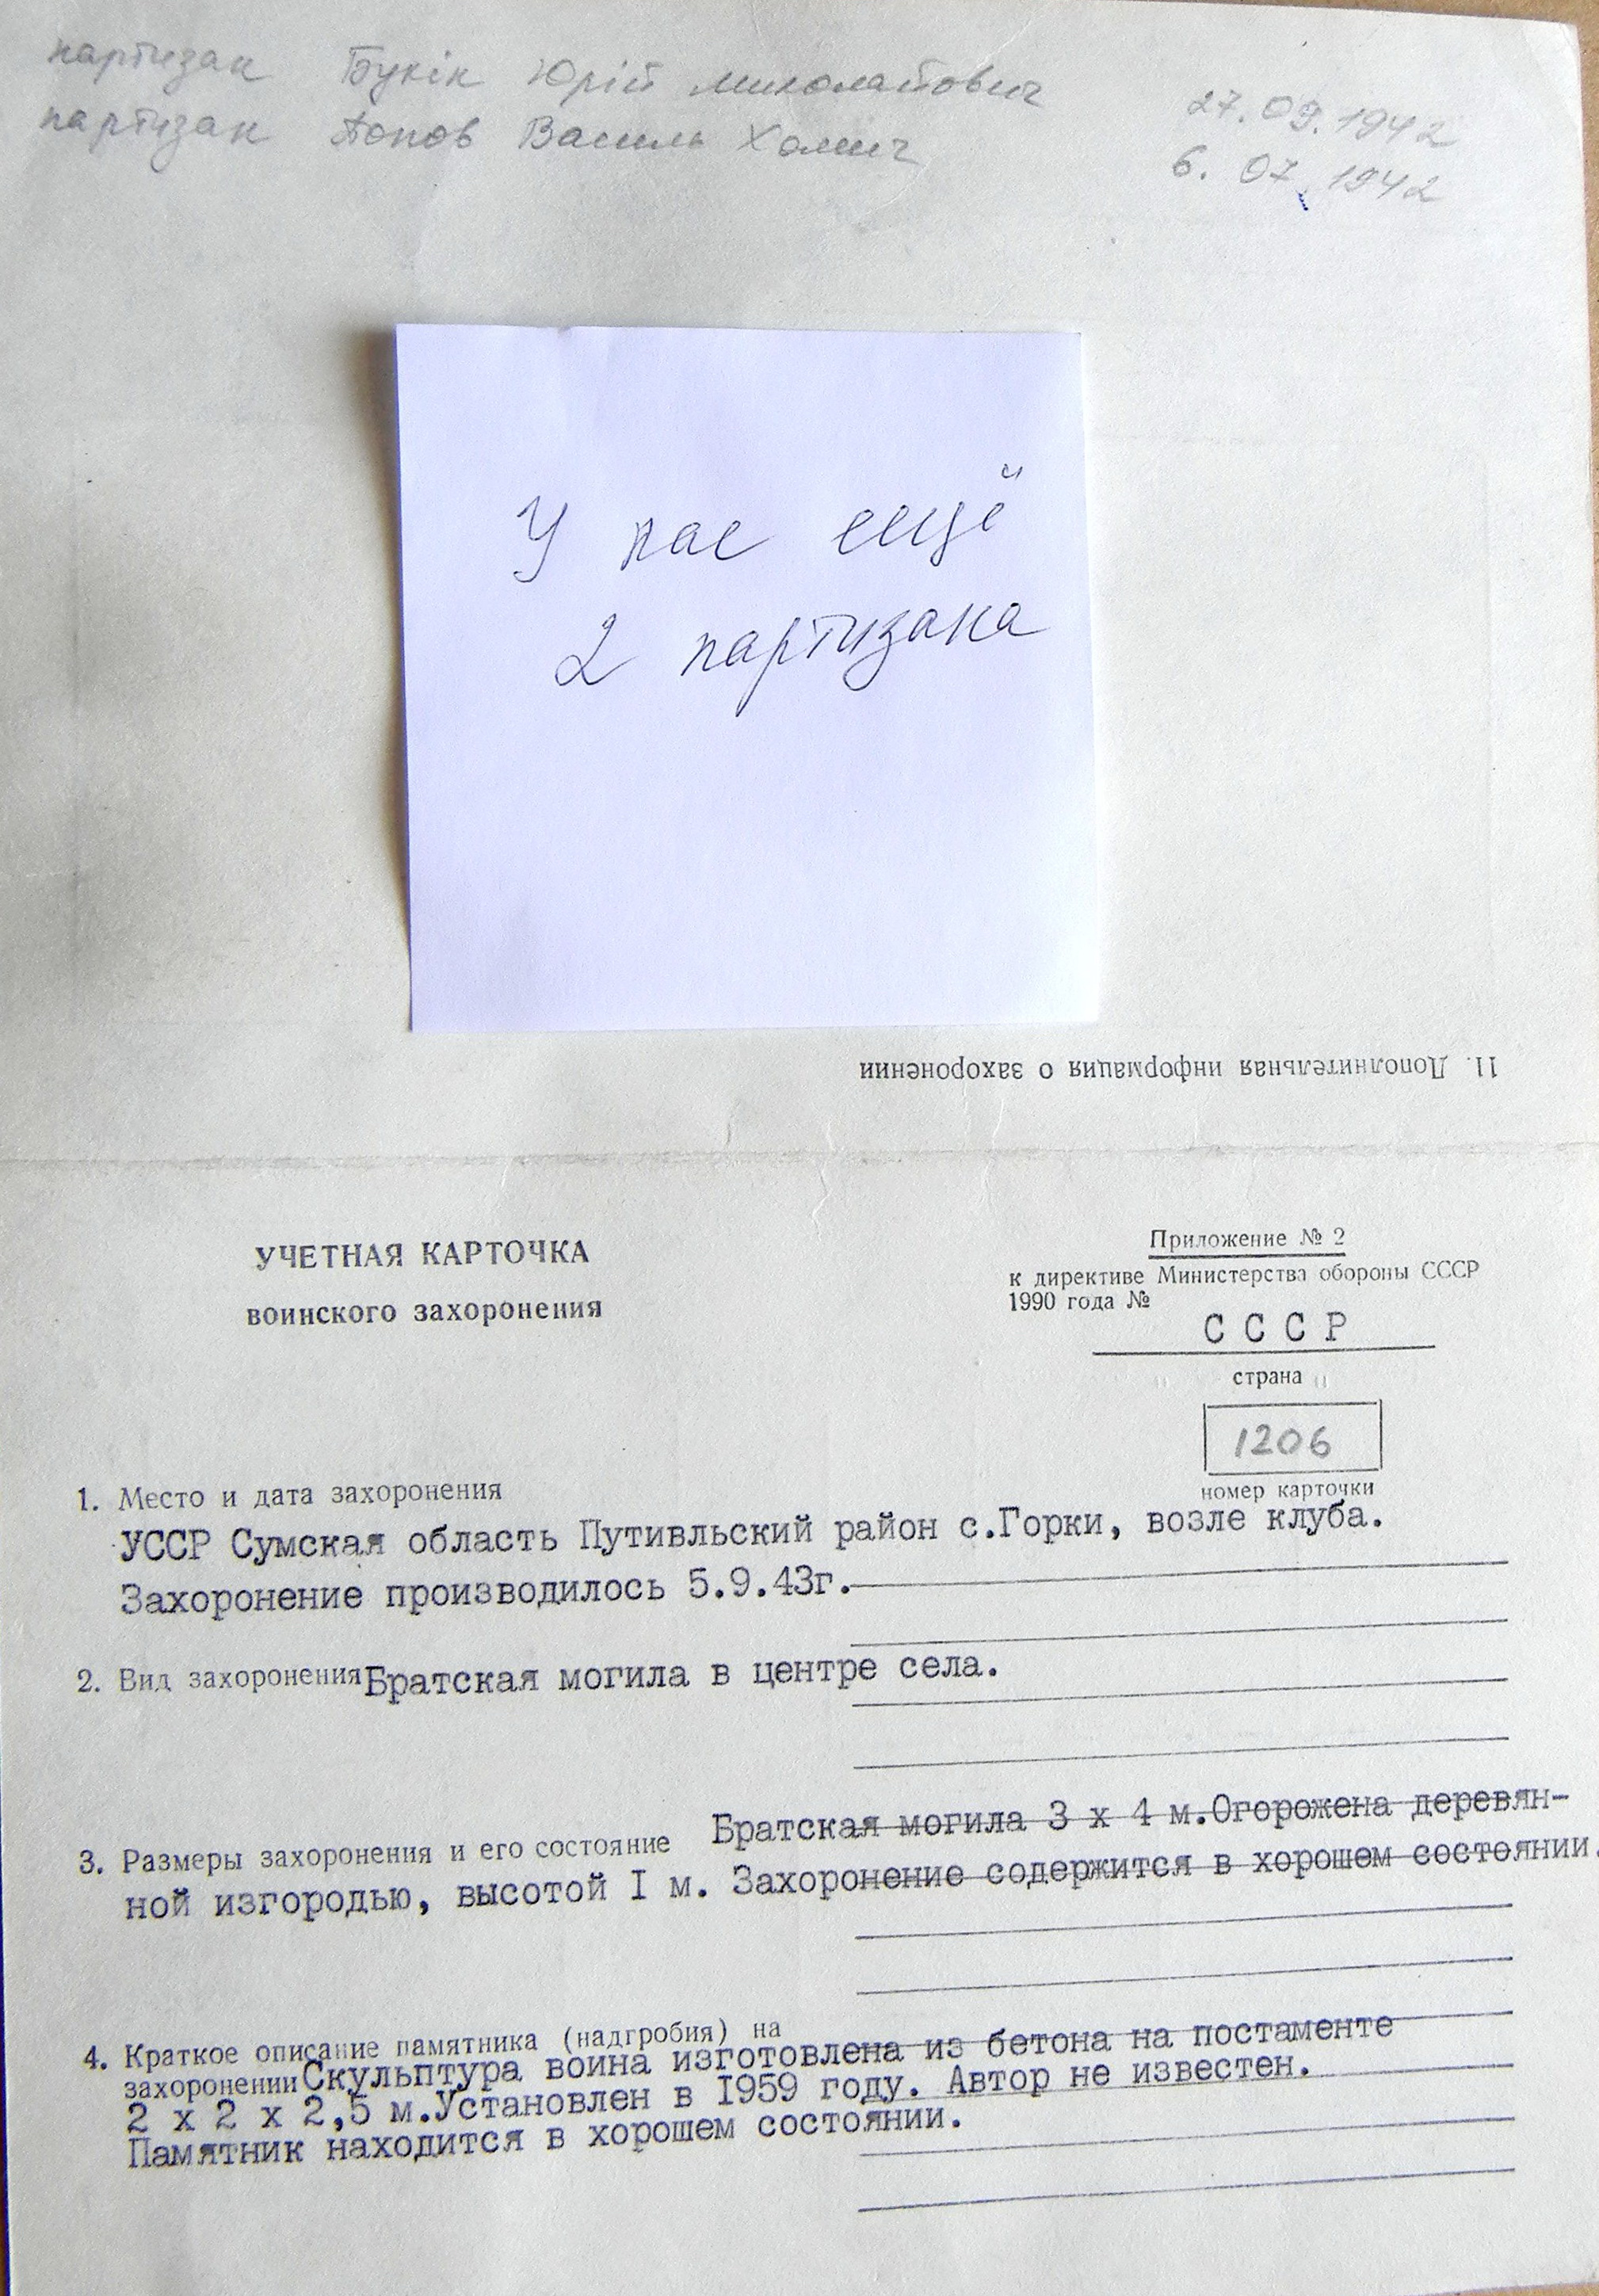 партизан Букін Юрій Миколайович 27.09.1942
партизан Попов Василь Хомич 6.07.1942
У нас ещё
2 партизана
11. Дополнительная информация о захоронении
УЧЕТНАЯ КАРТОЧКА
воинского захоронения
Приложение № 2
к директиве Министерства обороны СССР
1990 года №
СССР
страна
1206
номер карточки
1. Место и дата захоронения
УССР Сумская область Путивльский район с.Горки, возле клуба.
Захоронение производилось 5.9.43г.
2. Вид захоронения Братская могила в центре села.
3. Размеры захоронения и его состояние Братская могила 3 х 4 м.Огорожена деревян-
ной изгородью, высотой I м. Захоронение содержится в хорошем состоянии.
4. Краткое описание памятника (надгробия) на
захоронении Скульптура воина изготовлена из бетона на постаменте
2 х 2 х 2,5 м.Установлен в I959 году. Автор не известен.
Памятник находится в хорошем состоянии.